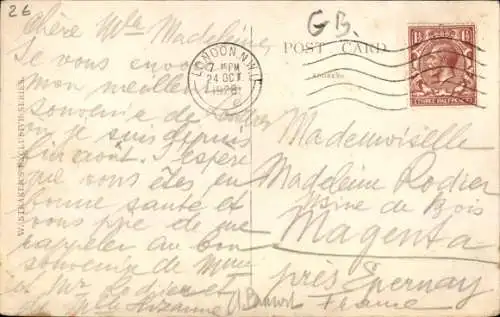 26
G B.
POST CARD
Chère Mlle Madeleine
Je vous envoie
mon meilleur
souvenir de Londres
où je suis depuis
fin août. J'espère
que vous êtes en
bonne santé et
vous prie de me
rappeler au bon
souvenir de Mme
et Mr Rodier et
de Mlle Suzanne
LONDON N.W.1
7 PM
24 OCT
1928
THREE HALFPENCE
Mademoiselle
Madeleine Rodier
Usine de Bois
Magenta
près Épernay
France